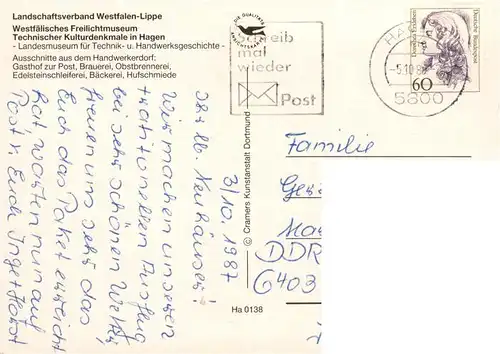 Landschaftsverband Westfalen-Lippe
Westfälisches Freilichtmuseum
Technischer Kulturdenkmale in Hagen
- Landesmuseum für Technik- u. Handwerksgeschichte -
Ausschnitte aus dem Handwerkerdorf;
Gasthof zur Post, Brauerei, Obstbrennerei,
Edelsteinschleiferei, Bäckerei, Hufschmiede
DIE QUALITÄTS
ANSICHTSKARTE
Schreib
mal
wieder
Post
HA
-5.10.87
5800
Deutsche Bundespost
60
© Cramers Kunstanstalt Dortmund
Ha 0138
3/10. 1987
Ihr lb. Neuhäuser!
Wir machen unseren
traditionellen Ausflug
bei sehr schönen Wetter,
freuen uns sehr das
Euch das Paket erreicht
hat, warten nun auf
Post v. Euch Inge + Horst
Familie
Ge
Ma
DDR
6403